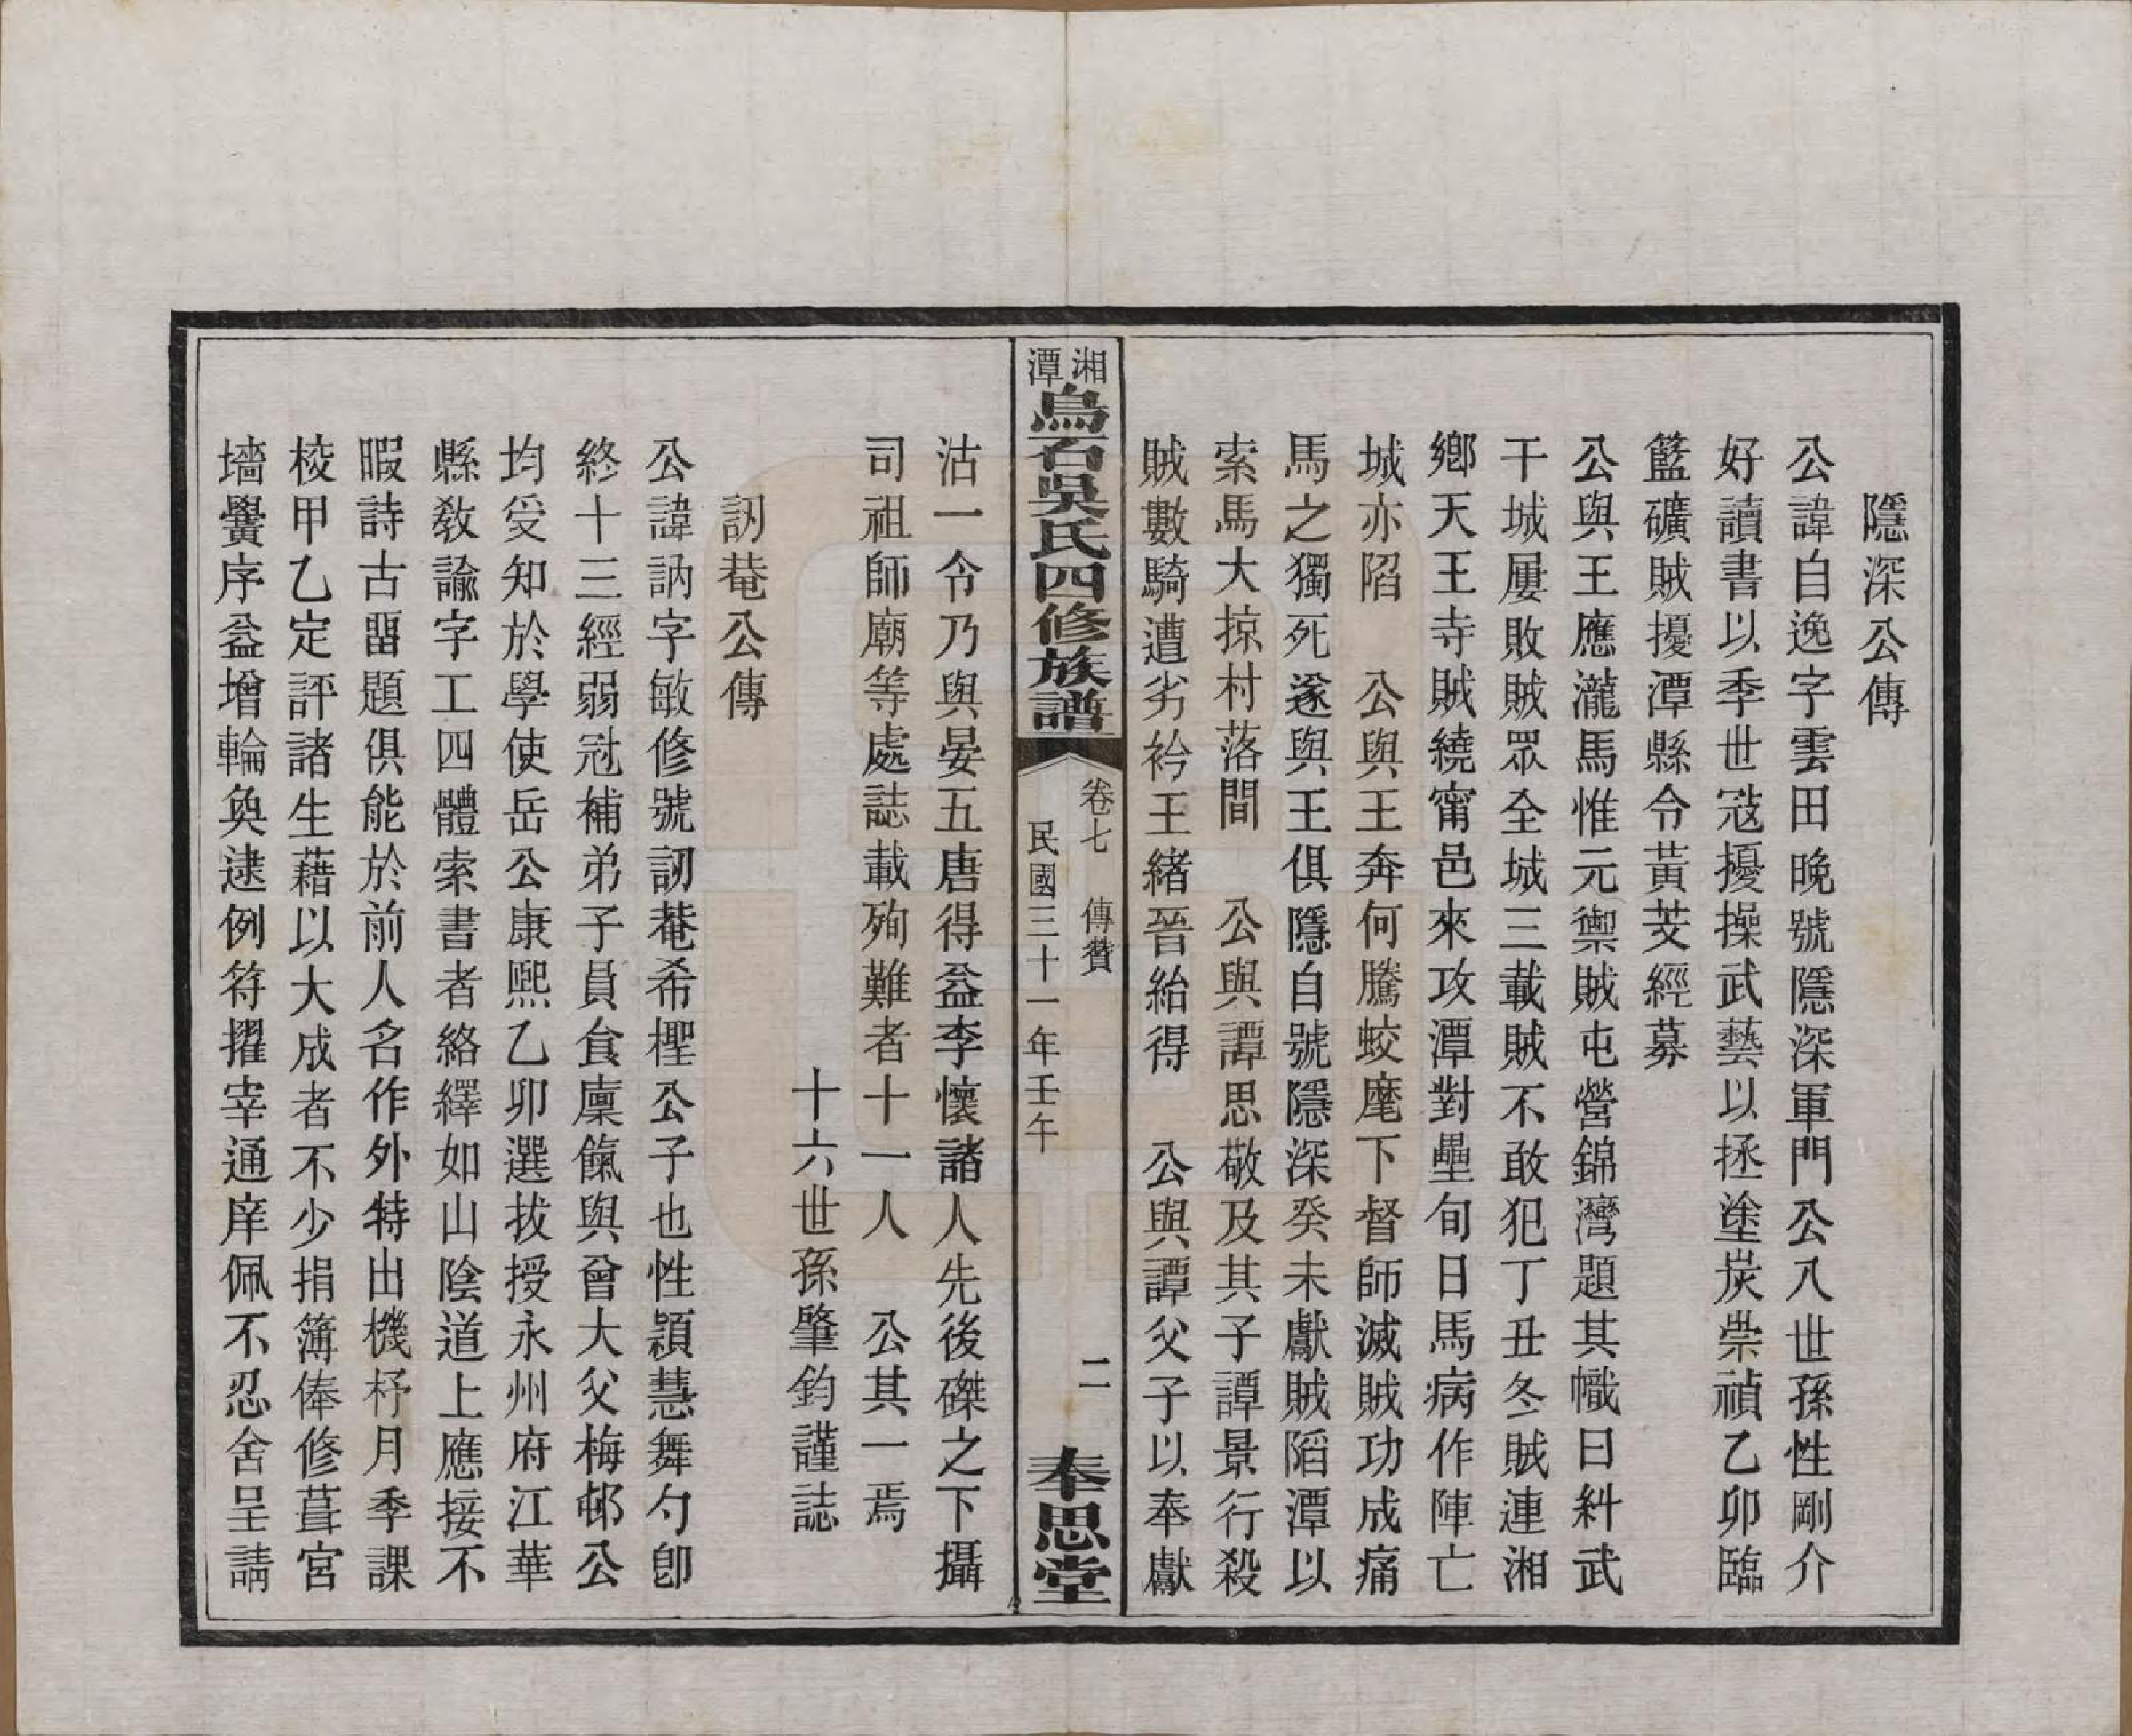 隱深公傳
公諱自逸字雲田晚號隱深軍門公八世孫性剛介
好讀書以季世冦擾操武藝以拯塗炭崇禎乙卯臨
籃礦賊擾潭縣令黃芟經募
公與王應瀧馬惟元禦賊屯營錦灣題其幟曰糾武
干城屢敗賊眾全城三載賊不敢犯丁丑冬賊連湘
鄉天王寺賊繞甯邑來攻潭對壘旬日馬病作陣亡
城亦陷　公與王奔何騰蛟麾下督師滅賊功成痛
馬之獨死遂與王俱隱自號隱深癸未獻賊陷潭以
索馬大掠村落間　公與譚思敬及其子譚景行殺
賊數騎遭劣衿王緒晉紿得　公與譚父子以奉獻
湘潭烏石吳氏四修族譜　卷七　傳贊　民國三十一年壬午　二　奉思堂
沽一令乃與晏五唐得益李懷諸人先後磔之下攝
司祖師廟等處誌載殉難者十一人　公其一焉
十六世孫肇鈞謹誌
訒菴公傳
公諱訥字敏修號訒菴希檉公子也性穎慧舞勺卽
終十三經弱冠補弟子員食廩餼與曾大父梅邨公
均受知於學使岳公康熙乙卯選拔授永州府江華
縣教諭字工四體索書者絡繹如山陰道上應接不
暇詩古畱題俱能於前人名作外特出機杼月季課
棱甲乙定評諸生藉以大成者不少捐簿俸修葺宮
墻黌序益增輪奐逮例符擢宰通庠佩不忍舍呈請